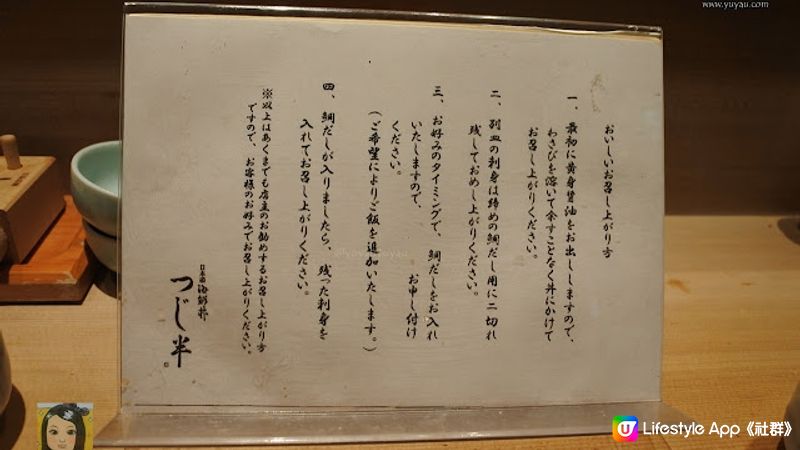 おいしいお召し上がり方
一、最初に黄身醤油をお出ししますので、
わさびを溶いて余すことなく丼にかけて
お召し上がりください。
二、別皿の刺身は締めの鯛だし用に二切れ
残しておめし上がりください。
三、お好みのタイミングで、鯛だしをお入れ
いたしますので、 お申し付け
ください。
(ご希望によりご飯を追加いたします。)
四、鯛だしが入りましたら、残った刺身を
入れてお召し上がりください。
※以上はあくまでも店主のお勧めするお召し上がり方
ですので、お客様のお好みでお召し上がりください。
日本橋海鮮丼
つじ半
www.yuyau.com
Lifestyle App《社群》